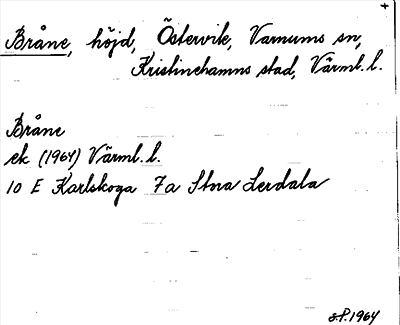 +
Bråne, höjd, Östervik, Varnums sn,
Kristinehamns stad, Värml. l.
Bråne
ek (1964) Värml. l.
10 E Karlskoga 7a Stora Lerdala
S.P. 1964